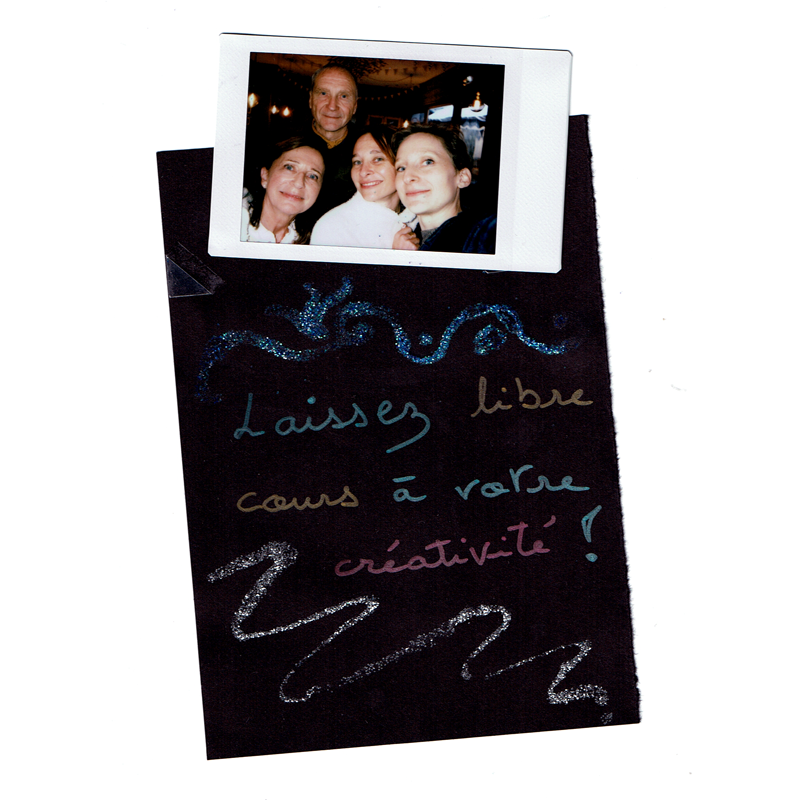 Laissez libre
cours à votre
créativité !